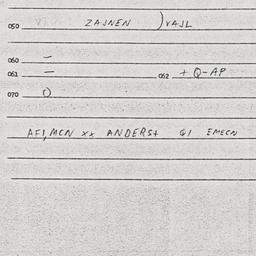 050 ZAJNEN ) VAJL
060 –
061 – 062 + Q-AP
070 0
AFI, MCN xx ANDERS+ GI EMECN